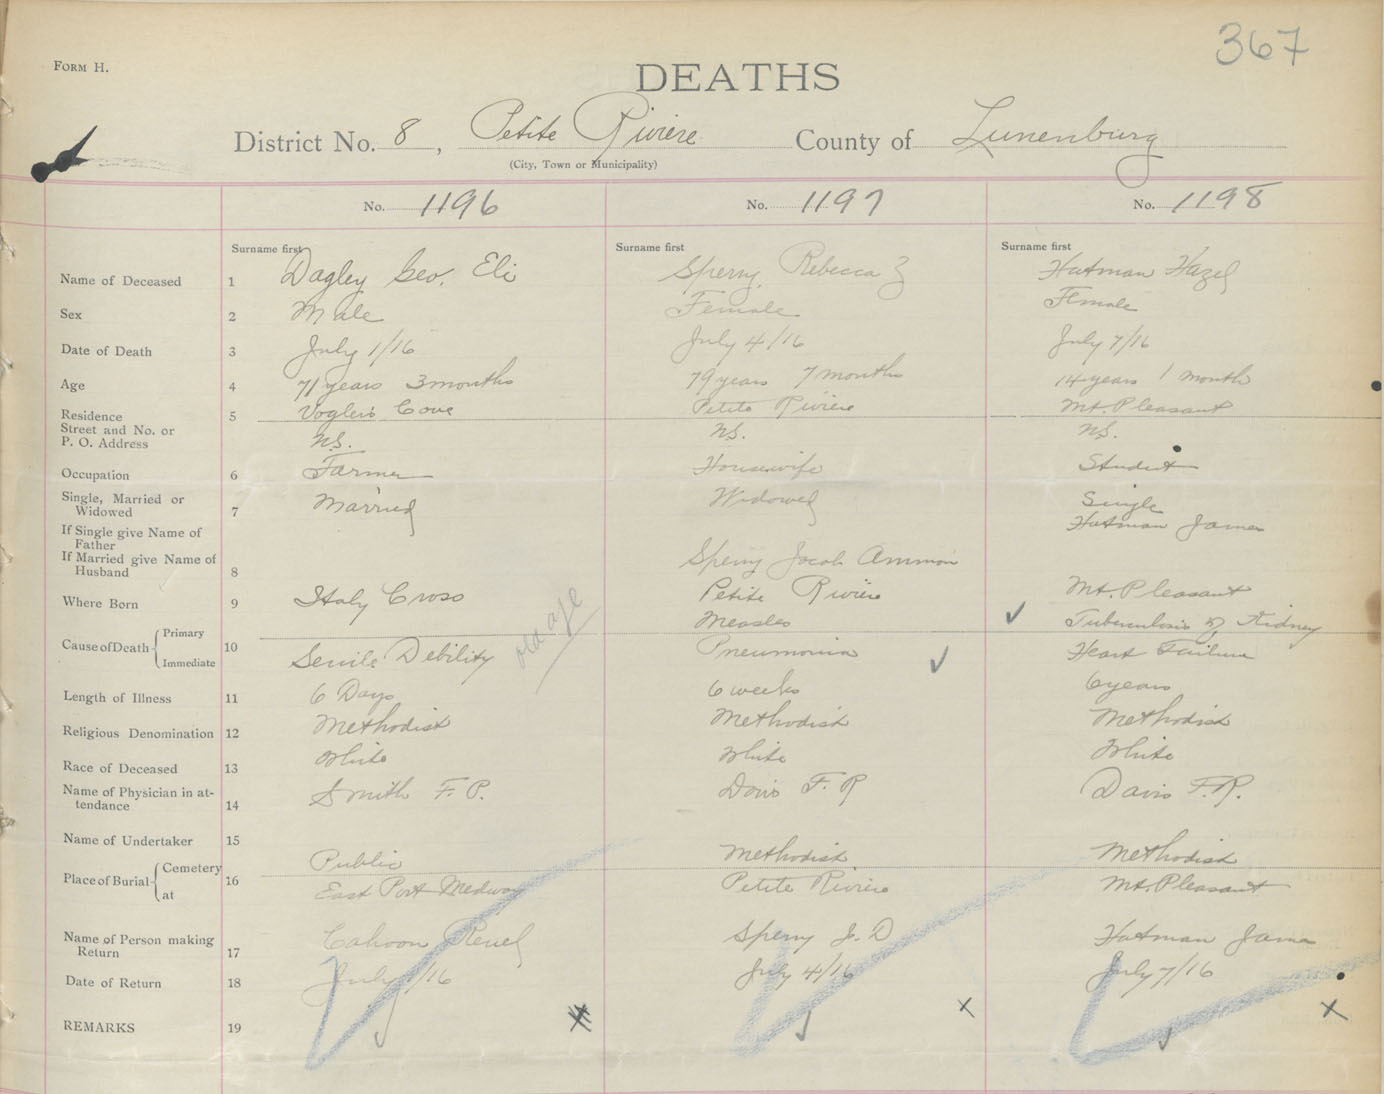 367
FORM H.
DEATHS
District No. 8, Petite Riviere County of Lunenburg
(City, Town or Municipality)
No. 1196 No. 1197 No. 1198
Surname first Surname first Surname first
Name of Deceased 1 Dagley Geo. Eli Sperry, Rebecca Z Hatman Hazel
Sex 2 Male Female Female
Date of Death 3 July 1/16 July 4/16 July 7/16
Age 4 71 years 3 months 79 years 7 months 14 years 1 month
Residence 5 Vogler's Cove Petite Riviere Mt. Pleasant
Street and No. or
P. O. Address N.S. N.S. N.S.
Occupation 6 Farmer Housewife Student
Single, Married or
Widowed 7 Married Widowed Single
If Single give Name of
Father Hatman James
If Married give Name of
Husband 8 Sperry Jacob Ammon
Where Born 9 Italy Cross Petite Riviere Mt. Pleasant
Cause of Death Primary Measles Tuberculosis of Kidney
10
Immediate Senile Debility old age Pneumonia Heart Failure
Length of Illness 11 6 Days 6 weeks 6 years
Religious Denomination 12 Methodist Methodist Methodist
Race of Deceased 13 White White White
Name of Physician in at-
tendance 14 Smith F. P. Davis F. R Davis F. R.
Name of Undertaker 15
Place of Burial Cemetery Public Methodist Methodist
16
at East Port Medway Petite Riviere Mt. Pleasant
Name of Person making
Return 17 Cahoon Reuel Sperry J. D Hatman James
Date of Return 18 July 1/16 July 4/16 July 7/16
REMARKS 19